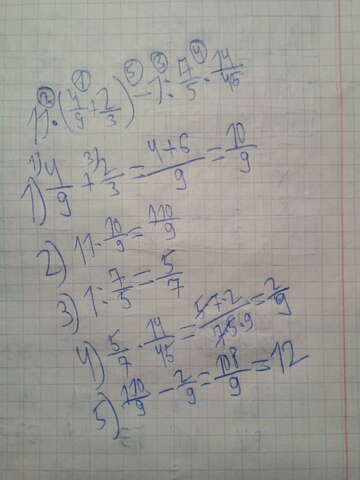 11·(4/9+2/3)-1:7/5·14/45
1) 4/9+2/3=(4+6)/9=10/9
2) 11·10/9=110/9
3) 1:7/5=5/7
4) 5/7·14/45=(5·7·2)/(7·5·9)=2/9
5) 110/9-2/9=108/9=12